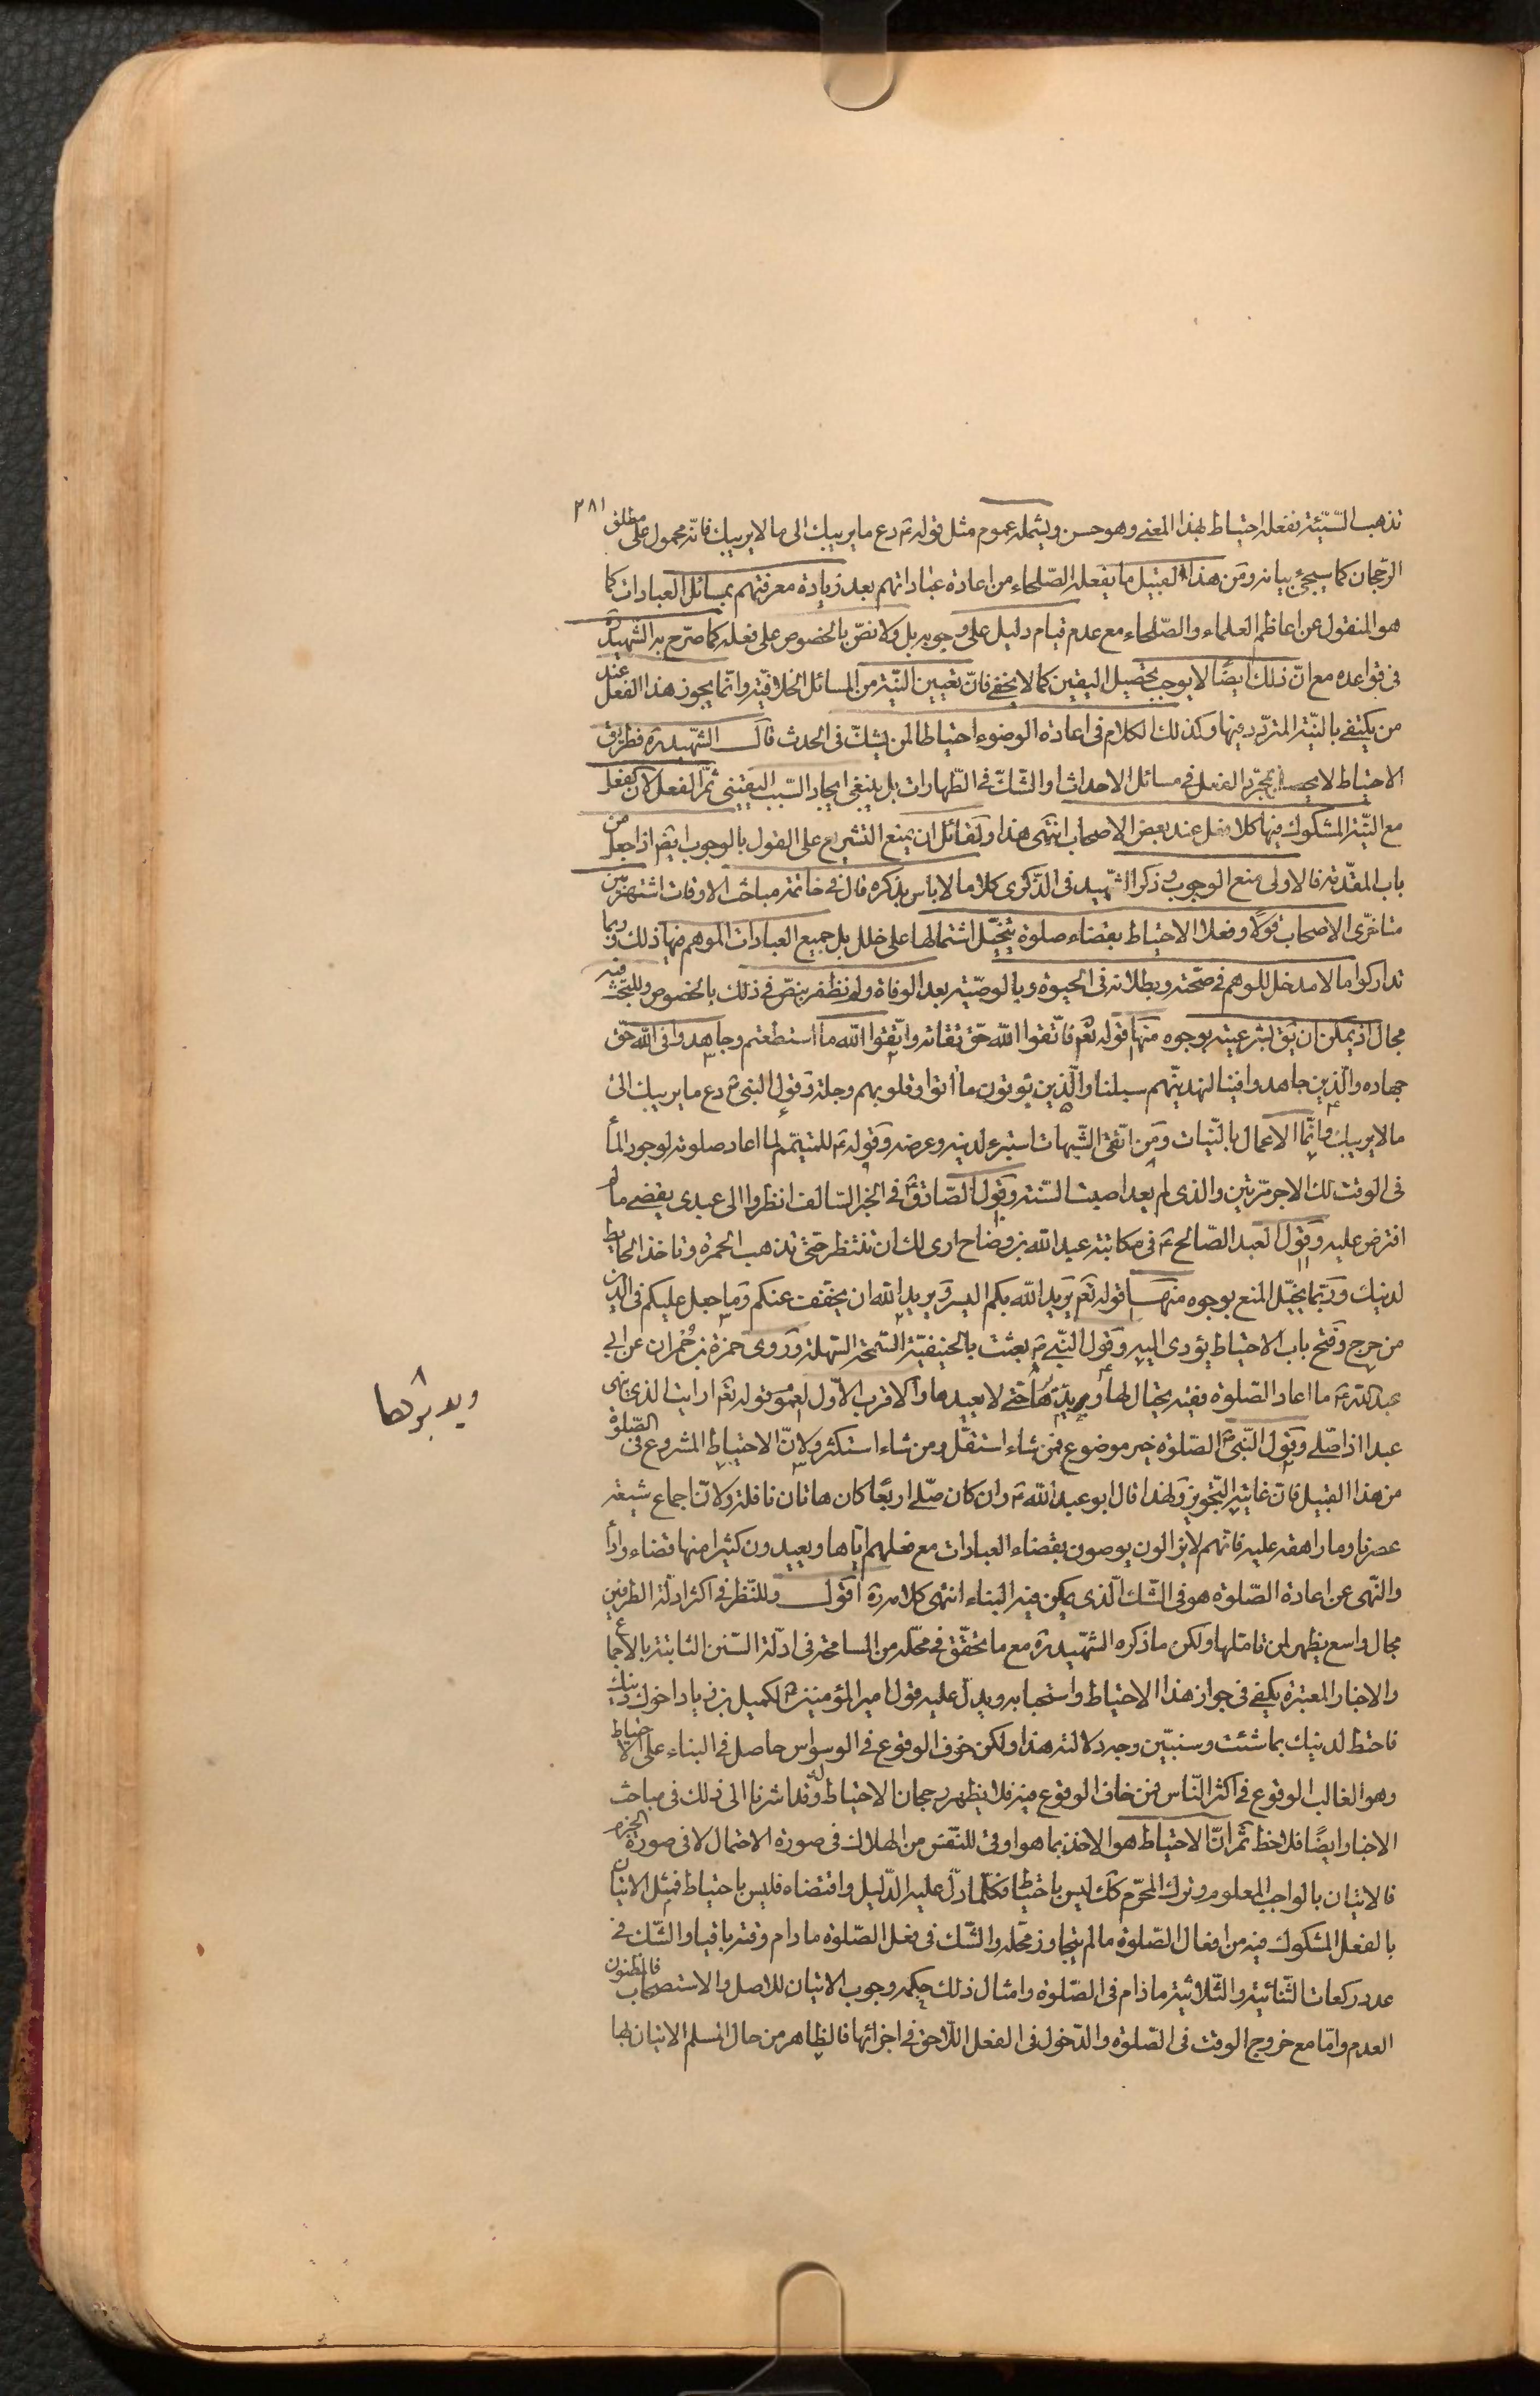 ٢٨١
تذهب السّيّئة ففعله احتياط بهذا المعنى وهو حسن ويشمله عموم مثل قوله ع دع ما يريبك الى ما لا يريبك فانّه محمول على مطلق
الرّجحان كما سيجئ بيانه ومن هذا القبيل ما يفعله الصّلحاء من اعادة عباداتهم بعد زيادة معرفتهم بمسائل العبادات كما
هو المنقول عن اعاظم العلماء والصّلحاء مع عدم قيام دليل على وجوبه بل ولا نصّ بالخصوص على فعله كما صرّح به الشّهيد ره
فى قواعده مع انّ ذلك ايضًا لا يوجب تحصيل اليقين كما لا يخفى فانّ تعيين النّيّة من المسائل الخلافيّة وانّما يجوز هذا الفعل عند
من يكتفى بالنّيّة المتردّد فيها وكذلك الكلام فى اعادة الوضوء احتياطا لمن يشكّ فى الحدث قال الشّهيد ره فطريق
الاحتياط لا يحصل بمجرّد الفعل فى مسائل الاحداث والشّكّ فى الطّهارات بل ينبغى ايجاد السّبب اليقينى ثمّ الفعل لان الفعل
مع النّيّة المشكوك فيها كلا فعل عند بعض الاصحاب انتهى هذا ولقائل ان يمنع التشريع على القول بالوجوب ايضا اذا جعل من
باب المقدّمة فالاولى منع الوجوب وذكر الشّهيد فى الذّكرى كلاما لا باس بذكره قال فى خاتمة مباحث الاوقات اشتهر بين
متاخّرى الاصحاب قولًا وفعلا الاحتياط بقضاء صلوة يتخيّل اشتمالها على خلل بل جميع العبادات الموهم فيها ذلك وربما
تداركوا ما لا مدخل للوهم فى صحّته وبطلانه فى الحيوة وبالوصيّة بعد الوفاة ولم نظفر بنصّ فى ذلك بالخصوص وللبحث فيه
مجال اذ يمكن ان يق لشرعيته بوجوه منها قوله تعم فاتّقوا اللّه حقّ تقاته واتّقوا اللّه ما استطعتم وجاهدوا فى اللّه حقّ
جهاده والّذين جاهدوا فينا لنهدينّهم سبلنا والّذين يؤتون ما اتوا وقلوبهم وجلة وقول النبىّ ص دع ما يريبك الى
ما لا يريبك وانّما الاعمال بالنّيات ومن اتّقى الشّبهات استبرء لدينه وعرضه وقوله ع للمتيمّم لما اعاد صلوته لوجود الماء
فى الوقت لك الاجر مرّتين والذى لم يعد اصبت السّنة وقول الصّادق ع فى الخبر السّالف انظروا الى عبدى يقضى ما لم
افترض عليه وقول العبد الصّالح ع فى مكاتبة عبد اللّه بن وضّاح ارى لك ان تنتظر حتّى تذهب الحمرة وتاخذ الحايط
لدينك وربّما يخيّل المنع بوجوه منها قوله تعم يريد اللّه بكم اليسر ويريد اللّه ان يخفّف عنكم وما جعل عليكم فى الدين
من حرج وفتح باب الاحتياط يؤدى اليه وقول النّبى ص بعثت بالحنيفيّة السّمحة السّهلة وروى حمزة بن حُمران عن ابى
عبد اللّه ع ما اعاد الصّلوة فقيه يحتال لها ويدبّرها حتّى لا يعيدها والاقرب الاوّل لعموم قوله تعم ارايت الذى ينهى
ويدبرها
عبدا اذا صلّى وقول النّبىّ ص الصّلوة خير موضوع فمن شاء استقلّ ومن شاء استكثر ولانّ الاحتياط المشروع فى الصّلوة
من هذا القبيل فانّ غايته التّجويز ولهذا قال ابو عبد اللّه ع وان كان صلّى اربعًا كان هاتان نافلة ولانّ اجماع شيعة
عصرنا وما راهقه عليه فانّهم لا يزالون يوصون بقضاء العبادات مع فعلهم ايّاها ويعيدون كثيرا منها قضاء واداء
والنّهى عن اعادة الصّلوة هو فى الشّك الّذى يمكن فيه البناء انتهى كلامه ره اقول وللنّظر فى اكثر ادلّة الطرفين
مجال واسع يظهر لمن تاملها ولكن ما ذكره الشّهيد ره مع ما تحقّق فى محلّه من المسامحة فى ادلّة السّنن الثابتة بالاجماع
والاخبار المعتبرة يكفى فى جواز هذا الاحتياط واستحبابه ويدلّ عليه قول امير المؤمنين ع لكميل بن زياد اخوك دينك
فاحتط لدينك بما شئت وسنبيّن وجه دلالته هذا ولكن خوف الوقوع فى الوسواس حاصل فى البناء على الاحتياط
وهو الغالب الوقوع فى اكثر النّاس فمن خاف الوقوع فيه فلا يظهر رجحان الاحتياط له وقد اشرنا الى ذلك فى مباحث
الاخبار ايضًا فلاحظ ثمّ انّ الاحتياط هو الاخذ بما هو اوفق للنّفس من الهلاك فى صورة الاحتمال لا فى صورة الجزم
فالاتيان بالواجب المعلوم وترك المحرّم كك ليس باحتياط فكلّما دلّ عليه الدّليل واقتضاه فليس باحتياط فمثل الاتيان
بالفعل المشكوك فيه من افعال الصّلوة ما لم يتجاوز محلّه والشّك فى فعل الصّلوة ما دام وقته باقيا والشّك فى
عدد ركعات الثّنائية والثّلاثية ما دام فى الصّلوة وامثال ذلك حكمه وجوب الاتيان للاصل والاستصحاب فالمظنون
العدم وامّا مع خروج الوقت فى الصّلوة والدّخول فى الفعل اللّاحق فى اجزائها فالظاهر من حال المسلم الاتيان بها